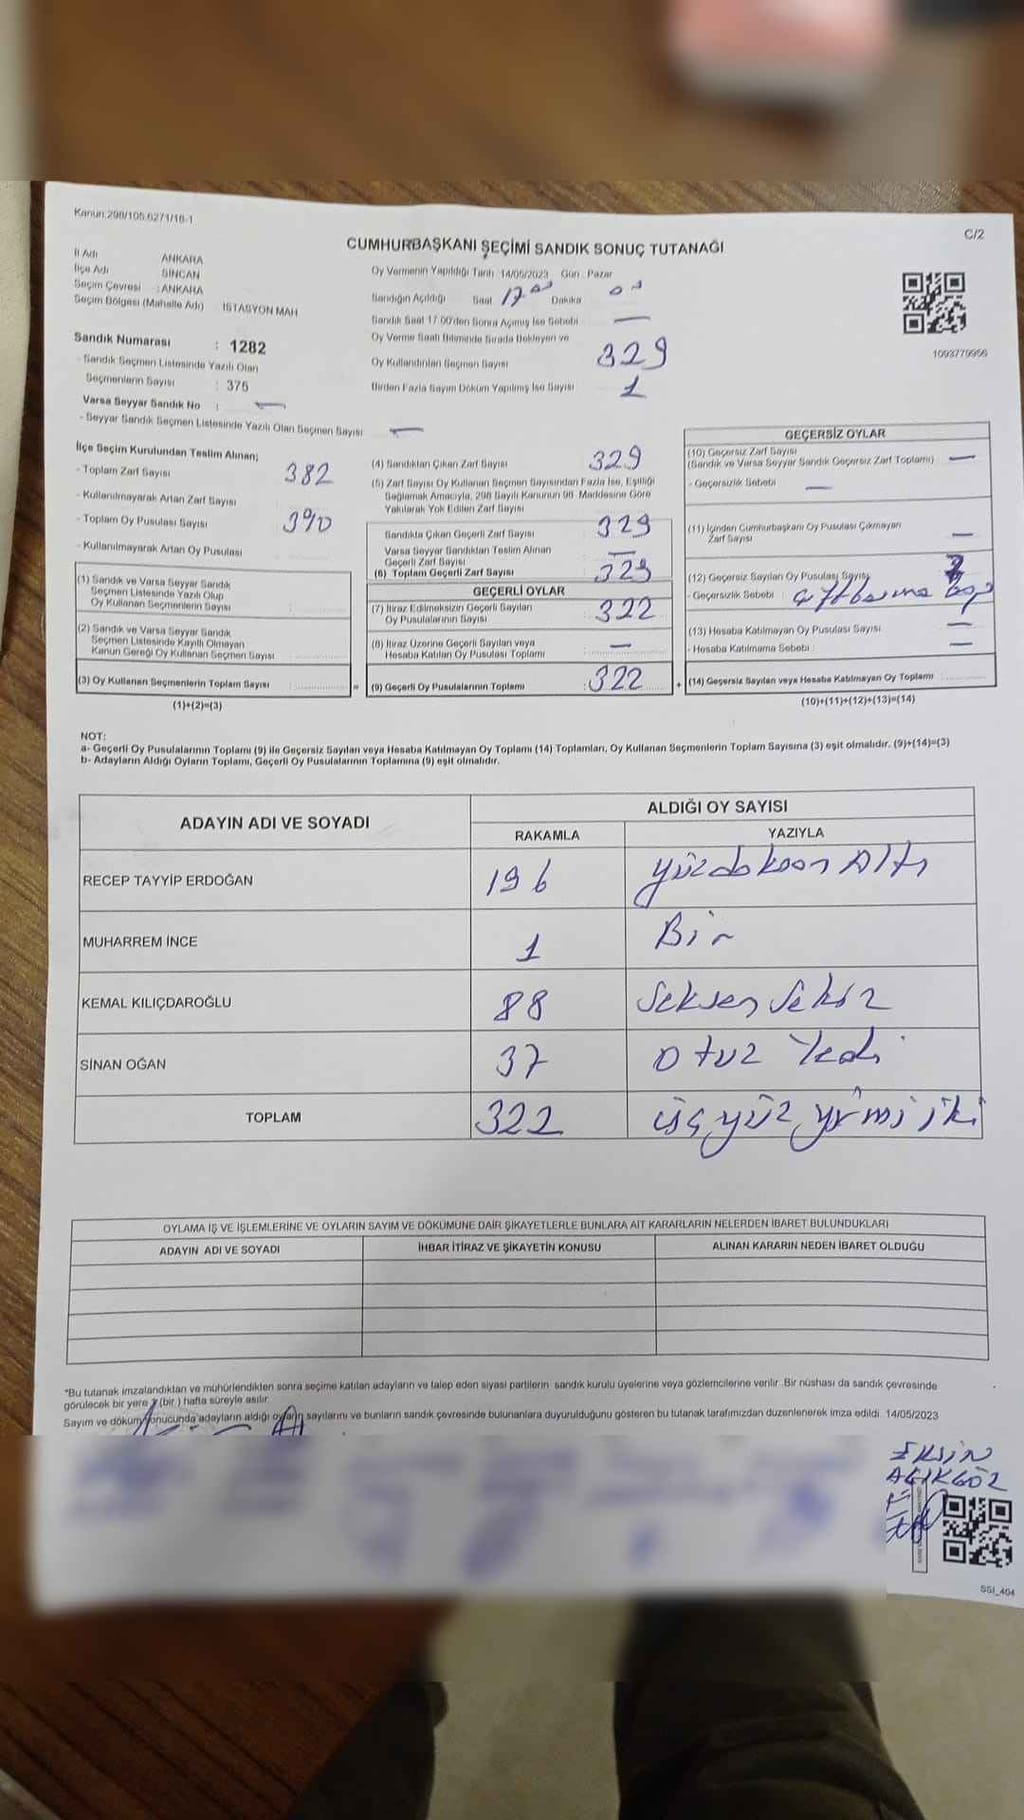 Kanun:298/105.6271/18-1
C/2
CUMHURBAŞKANI SEÇİMİ SANDIK SONUÇ TUTANAĞI
İl Adı ANKARA
İlçe Adı SİNCAN
Seçim Çevresi : ANKARA
Seçim Bölgesi (Mahalle Adı) İSTASYON MAH
Oy Vermenin Yapıldığı Tarih 14/05/2023 Gün : Pazar
Sandığın Açıldığı Saat 17 00 Dakika
Sandık Saat 17.00'den Sonra Açımış İse Sebebi —
Oy Verme Saati Bitiminde Sırada Bekleyen ve
Oy Kullandırılan Seçmen Sayısı 329
Birden Fazla Sayım Döküm Yapılmış İse Sayısı 1
1093779966
Sandık Numarası : 1282
- Sandık Seçmen Listesinde Yazılı Olan
Seçmenlerin Sayısı : 375
Varsa Seyyar Sandık No : —
- Seyyar Sandık Seçmen Listesinde Yazılı Olan Seçmen Sayısı —
İlçe Seçim Kurulundan Teslim Alınan;
- Toplam Zarf Sayısı 382
- Kullanılmayarak Artan Zarf Sayısı
- Toplam Oy Pusulası Sayısı 390
- Kullanılmayarak Artan Oy Pusulası
(1) Sandık ve Varsa Seyyar Sandık
Seçmen Listesinde Yazılı Olup
Oy Kullanan Seçmenlerin Sayısı
(2) Sandık ve Varsa Seyyar Sandık
Seçmen Listesinde Kayıtlı Olmayan
Kanun Gereği Oy Kullanan Seçmen Sayısı
(3) Oy Kullanan Seçmenlerin Toplam Sayısı
(1)+(2)=(3)
(4) Sandıktan Çıkan Zarf Sayısı 329
(5) Zarf Sayısı Oy Kullanan Seçmen Sayısından Fazla İse, Eşitliği
Sağlamak Amacıyla, 298 Sayılı Kanunun 98. Maddesine Göre
Yakılarak Yok Edilen Zarf Sayısı
Sandıkta Çıkan Geçerli Zarf Sayısı 329
Varsa Seyyar Sandıktan Teslim Alınan
Geçerli Zarf Sayısı —
(6) Toplam Geçerli Zarf Sayısı 329
GEÇERLİ OYLAR
(7) İtiraz Edilmeksizin Geçerli Sayılan
Oy Pusulalarının Sayısı 322
(8) İtiraz Üzerine Geçerli Sayılan veya
Hesaba Katılan Oy Pusulası Toplamı —
= (9) Geçerli Oy Pusulalarının Toplamı : 322 +
GEÇERSİZ OYLAR
(10) Geçersiz Zarf Sayısı
(Sandık ve Varsa Seyyar Sandık Geçersiz Zarf Toplamı) —
- Geçersizlik Sebebi —
(11) İçinden Cumhurbaşkanı Oy Pusulası Çıkmayan
Zarf Sayısı —
(12) Geçersiz Sayılan Oy Pusulası Sayısı
- Geçersizlik Sebebi :
(13) Hesaba Katılmayan Oy Pusulası Sayısı —
- Hesaba Katılmama Sebebi —
(14) Geçersiz Sayılan veya Hesaba Katılmayan Oy Toplamı
(10)+(11)+(12)+(13)=(14)
NOT:
a- Geçerli Oy Pusulalarının Toplamı (9) ile Geçersiz Sayılan veya Hesaba Katılmayan Oy Toplamı (14) Toplamları, Oy Kullanan Seçmenlerin Toplam Sayısına (3) eşit olmalıdır. (9)+(14)=(3)
b- Adayların Aldığı Oyların Toplamı, Geçerli Oy Pusulalarının Toplamına (9) eşit olmalıdır.
ADAYIN ADI VE SOYADI ALDIĞI OY SAYISI
RAKAMLA YAZIYLA
RECEP TAYYİP ERDOĞAN 196 Yüzdoksan Altı
MUHARREM İNCE 1 Bir
KEMAL KILIÇDAROĞLU 88 Seksen Sekiz
SİNAN OĞAN 37 Otuz Yedi
TOPLAM 322 üçyüz yirmi iki
OYLAMA İŞ VE İŞLEMLERİNE VE OYLARIN SAYIM VE DÖKÜMÜNE DAİR ŞİKAYETLERLE BUNLARA AİT KARARLARIN NELERDEN İBARET BULUNDUKLARI
ADAYIN ADI VE SOYADI İHBAR İTİRAZ VE ŞİKAYETİN KONUSU ALINAN KARARIN NEDEN İBARET OLDUĞU
*Bu tutanak imzalandıktan ve mühürlendikten sonra seçime katılan adayların ve talep eden siyasi partilerin sandık kurulu üyelerine veya gözlemcilerine verilir. Bir nüshası da sandık çevresinde
görülecek bir yere (bir) hafta süreyle asılır.
Sayım ve döküm sonucunda adayların aldığı oyların sayılarını ve bunların sandık çevresinde bulunanlara duyurulduğunu gösteren bu tutanak tarafımızdan düzenlenerek imza edildi. 14/05/2023
AÇIKGÖZ
SSI_404